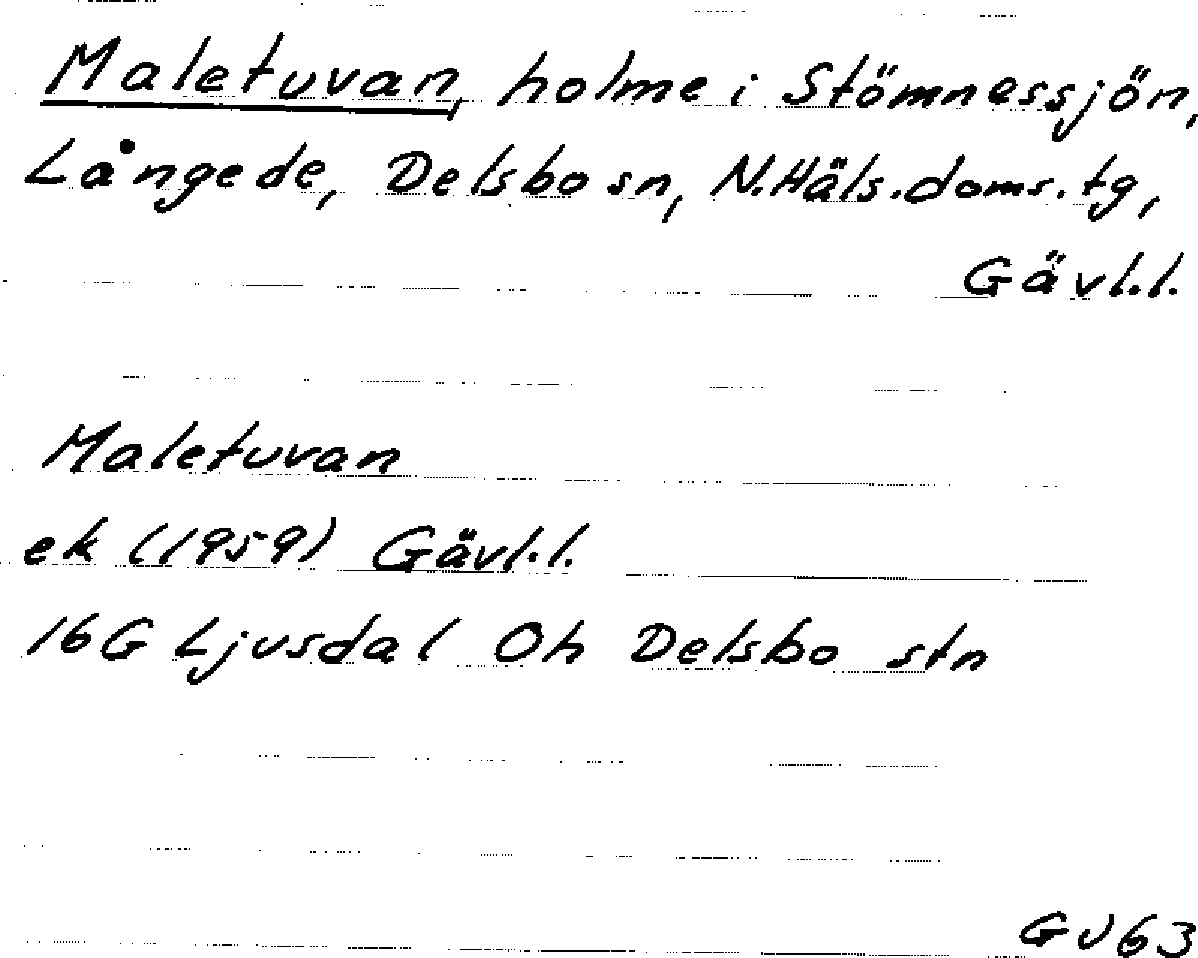 Maletuvan, holme i Stömnessjön,
Långede, Delsbo sn, N.Häls.doms.tg,
Gävl.l.
Maletuvan
ek (1959) Gävl.l.
16G Ljusdal Oh Delsbo stn
GU63